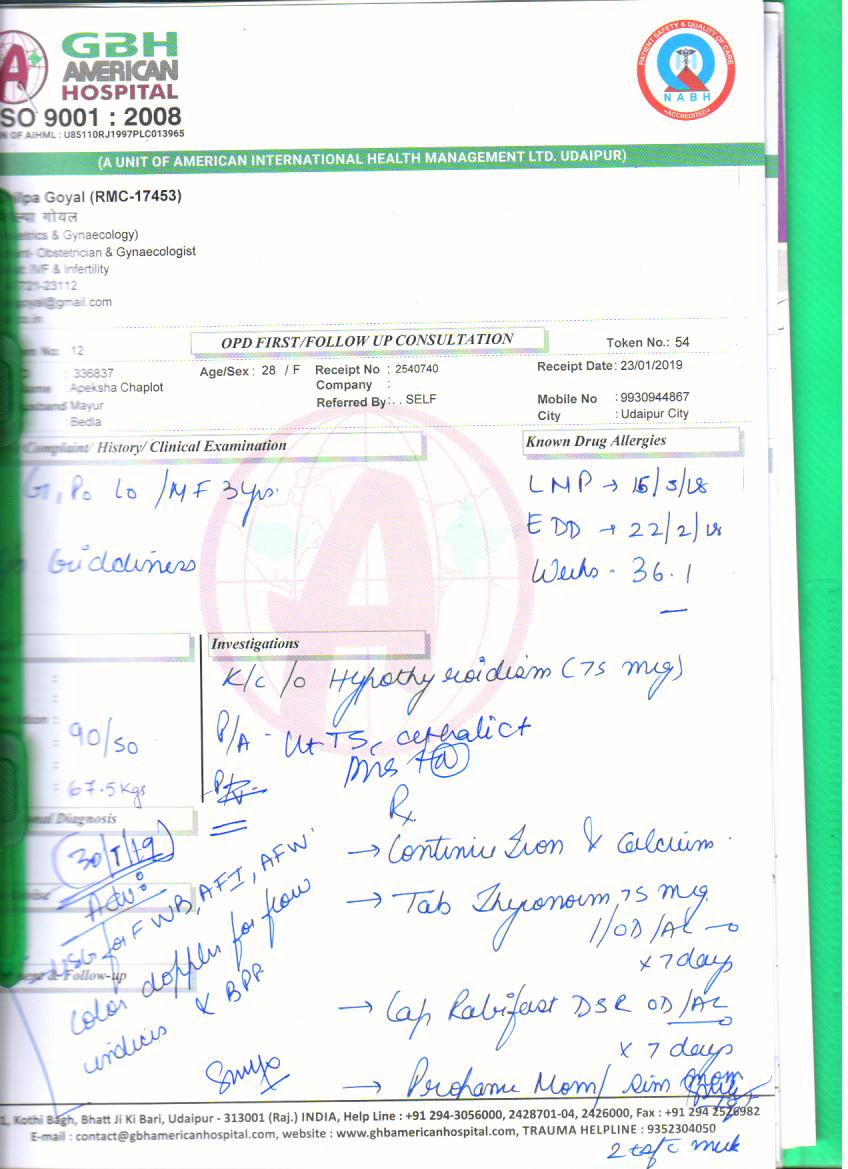 GBH
AMERICAN
HOSPITAL
SO 9001 : 2008
N OF AIHML : U85110RJ1997PLC013965
PATIENT SAFETY & QUALITY OF CARE
NABH
ACCREDITED
(A UNIT OF AMERICAN INTERNATIONAL HEALTH MANAGEMENT LTD. UDAIPUR)
ilpa Goyal (RMC-17453)
गोयल
trics & Gynaecology)
Obstetrician & Gynaecologist
IVF & Infertility
7721-23112
goyal@gmail.com
co.in
No: 12
OPD FIRST/FOLLOW UP CONSULTATION
Token No.: 54
: 336837
Age/Sex : 28 / F
Receipt No : 2540740
Receipt Date: 23/01/2019
ame : Apeksha Chaplot
Company :
Mobile No : 9930944867
usband Mayur
Referred By : . . SELF
City : Udaipur City
: Bedla
Complaint/ History/ Clinical Examination
Known Drug Allergies
G1 P0 L0 /MF 3 yrs.
LMP → 15/5/18
EDD → 22/2/18
Giddiness
Weeks - 36.1
Investigations
K/c/o Hypothyroidism (75 mcg)
90/50
P/A - Ut TS, cephalic +
67.5 Kgs
Rx
nal Diagnosis
30/1/19
→ Continue Iron & Calcium.
Adv:
→ Tab Thyronorm 75 mcg
USG for FWB, AFI, AFW
1/OD/AC
x 7 days
& Follow-up
color doppler for flow
indices & BPP
→ Cap Rabifast DSR OD/AC
x 7 days
→ Prohance Mom/
1, Kothi Bagh, Bhatt Ji Ki Bari, Udaipur - 313001 (Raj.) INDIA, Help Line : +91 294-3056000, 2428701-04, 2426000, Fax : +91 294 2526982
E-mail : contact@gbhamericanhospital.com, website : www.ghbamericanhospital.com, TRAUMA HELPLINE : 9352304050
2 tsf c milk